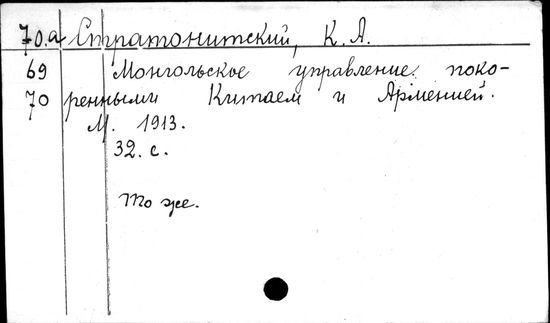 70.а Стратонитский, К. А.
69 Монгольское управление поко-
70 ренными Китаем и Арменией.
М. 1913.
32. с.
То же.